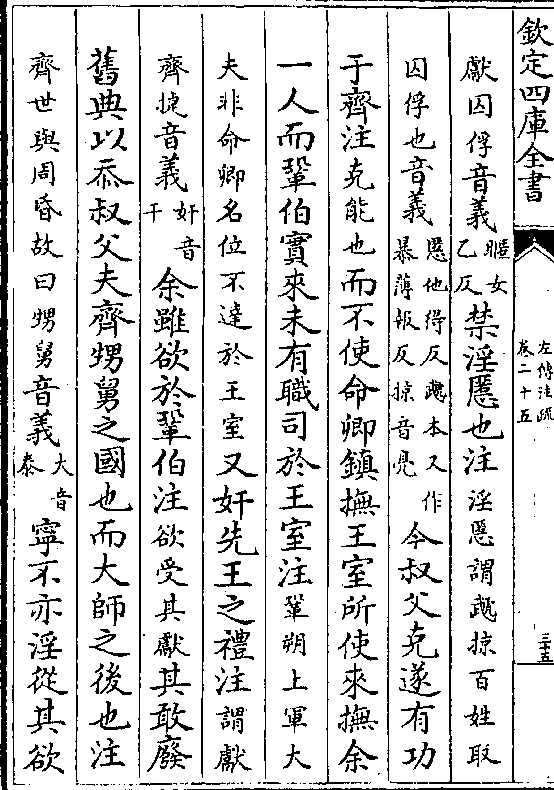 欽定四庫全書
左傳注疏
卷二十五
三十五
獻囚俘音義暱女乙反禁淫慝也注淫慝謂虣掠百姓取
囚俘也音義慝他得反虣本又作暴薄報反掠音亮今叔父克遂有功
于齊注克能也而不使命卿鎮撫王室所使來撫余
一人而鞏伯實來未有職司於王室注鞏朔上軍大
夫非命卿名位不達於王室又奸先王之禮注謂獻
齊捷音義奸音干余雖欲於鞏伯注欲受其獻其敢廢
舊典以忝叔父夫齊甥舅之國也而大師之後也注
齊世與周昏故曰甥舅音義大音泰寧不亦淫從其欲